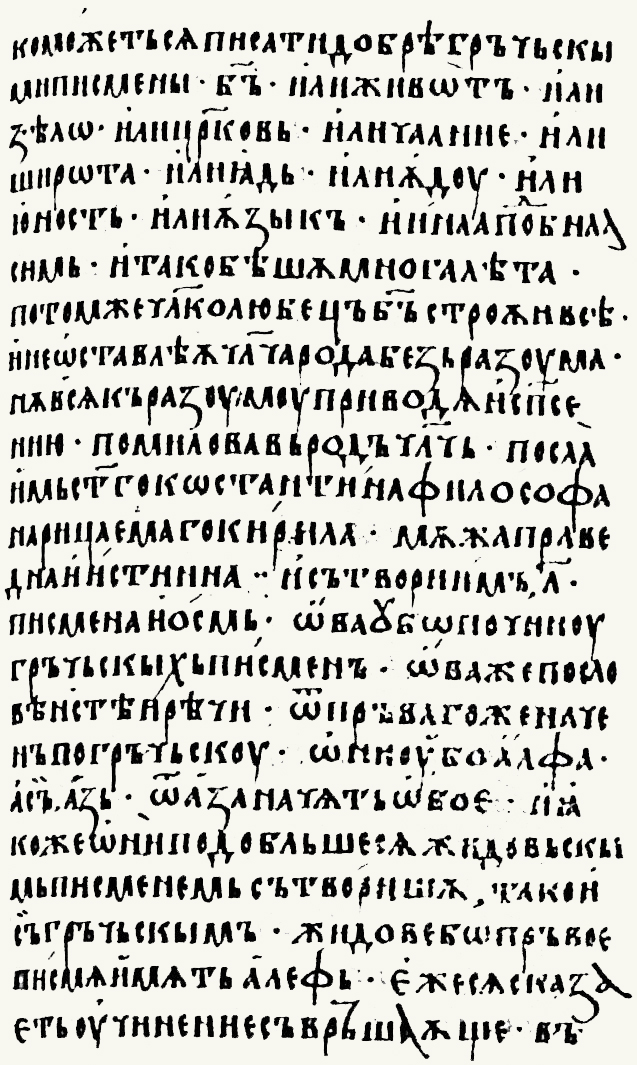 коможетьсѧписатидобрѣгрьчьскы
миписмены · бъ҃ · илиживѡтъ · или
ѕѣлѡ · илицр҃ковь · иличаание · или
широта · илиıадь · илиѫдоу · или
юность · илиѫзыкъ · иинаапⷪ҇бнаа
симь · итакобѣшѫмногалѣта ·
потомжечл҃колюбецъбъ҃строѫивсѣ ·
инеѡставлѣѫчл҃чародабезьразоума ·
нѫвсѧкъразоумоуприводѧиспⷭ҇е
нию · помиловавьродъчл҃чь · посла
имьст҃гокѡстантинафилософа
нарицаемагокирила · мѫжаправе
днаиистинна ·· исътвориимъ, л҃ ·
писменаиосмь · ѡ҆ваꙋбѡпочиноу
грьчьскыхьписменъ · ѡ҆важепосло
вѣнстѣирѣчи · ѿпръвагоженаче
нъпогрьчьскоу · ѡниоубоалфа ·
асъ҃.азь · ѿазаначѧтьѡбое · ꙗ
кожеѡниподобльшесѧжидовьскы
мьписменемьсътворишѧ, такои
сьгрьчьскымъ · жидовебѡпръвое
писмѧимѧтьалефь · ежесѧсказа
етьоучениесъвръшаѫще · въ